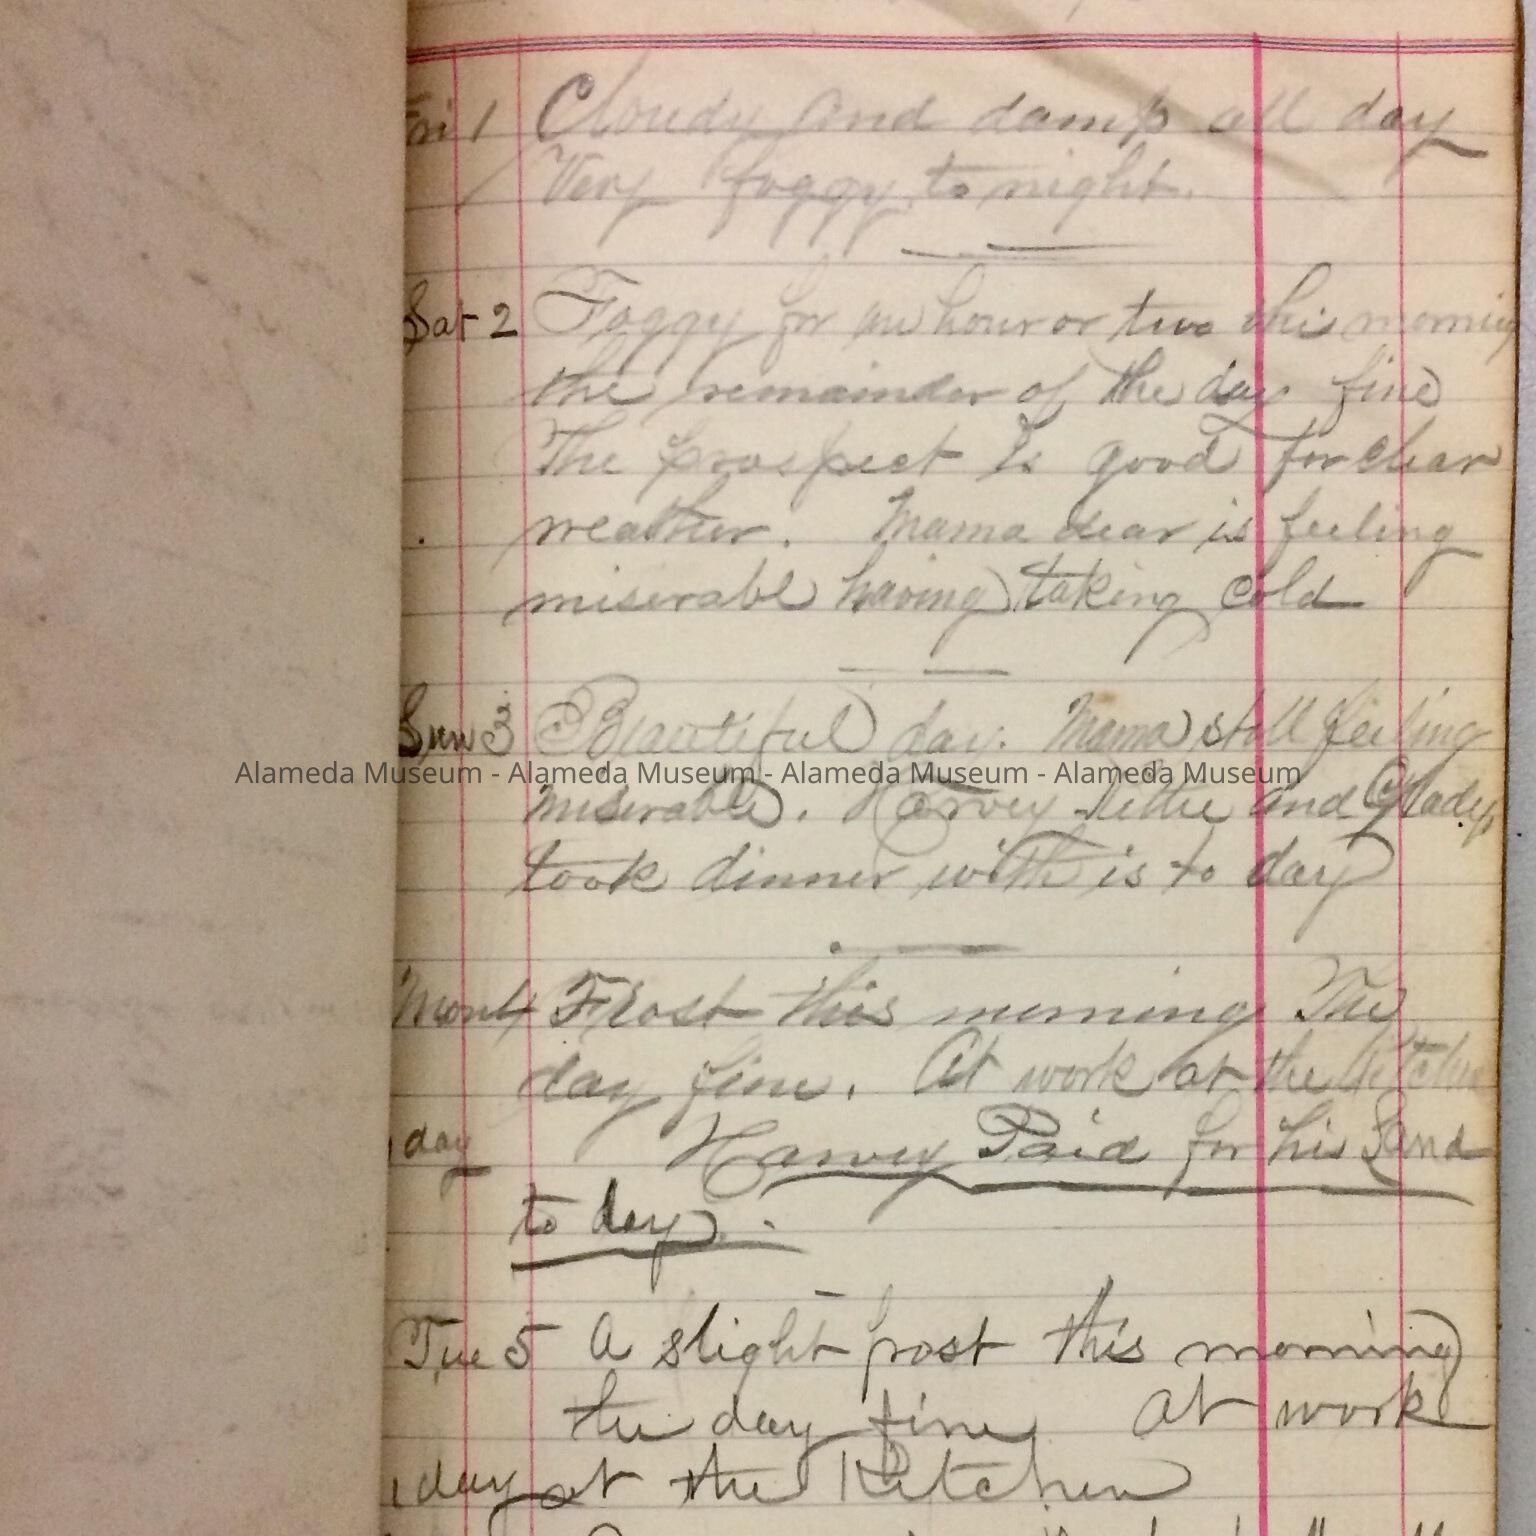 Fri 1 Cloudy and damp all day
Very foggy to night.
Sat 2 Foggy for an hour or two this morning
the remainder of the day fine
The prospect is good for clear
weather. Mama dear is feeling
miserable having taking cold
Sun 3 Beautiful day. Mama still feeling
Alameda Museum - Alameda Museum - Alameda Museum - Alameda Museum
miserable. Harvey and Gladys
took dinner with is to day
Mon 4 Frost this morning The
day fine. At work at the Kitchen
1 day Harvey Paid for his Land
to day.
Tue 5 A slight frost this morning
the day fine At work
1 day at the Kitchen